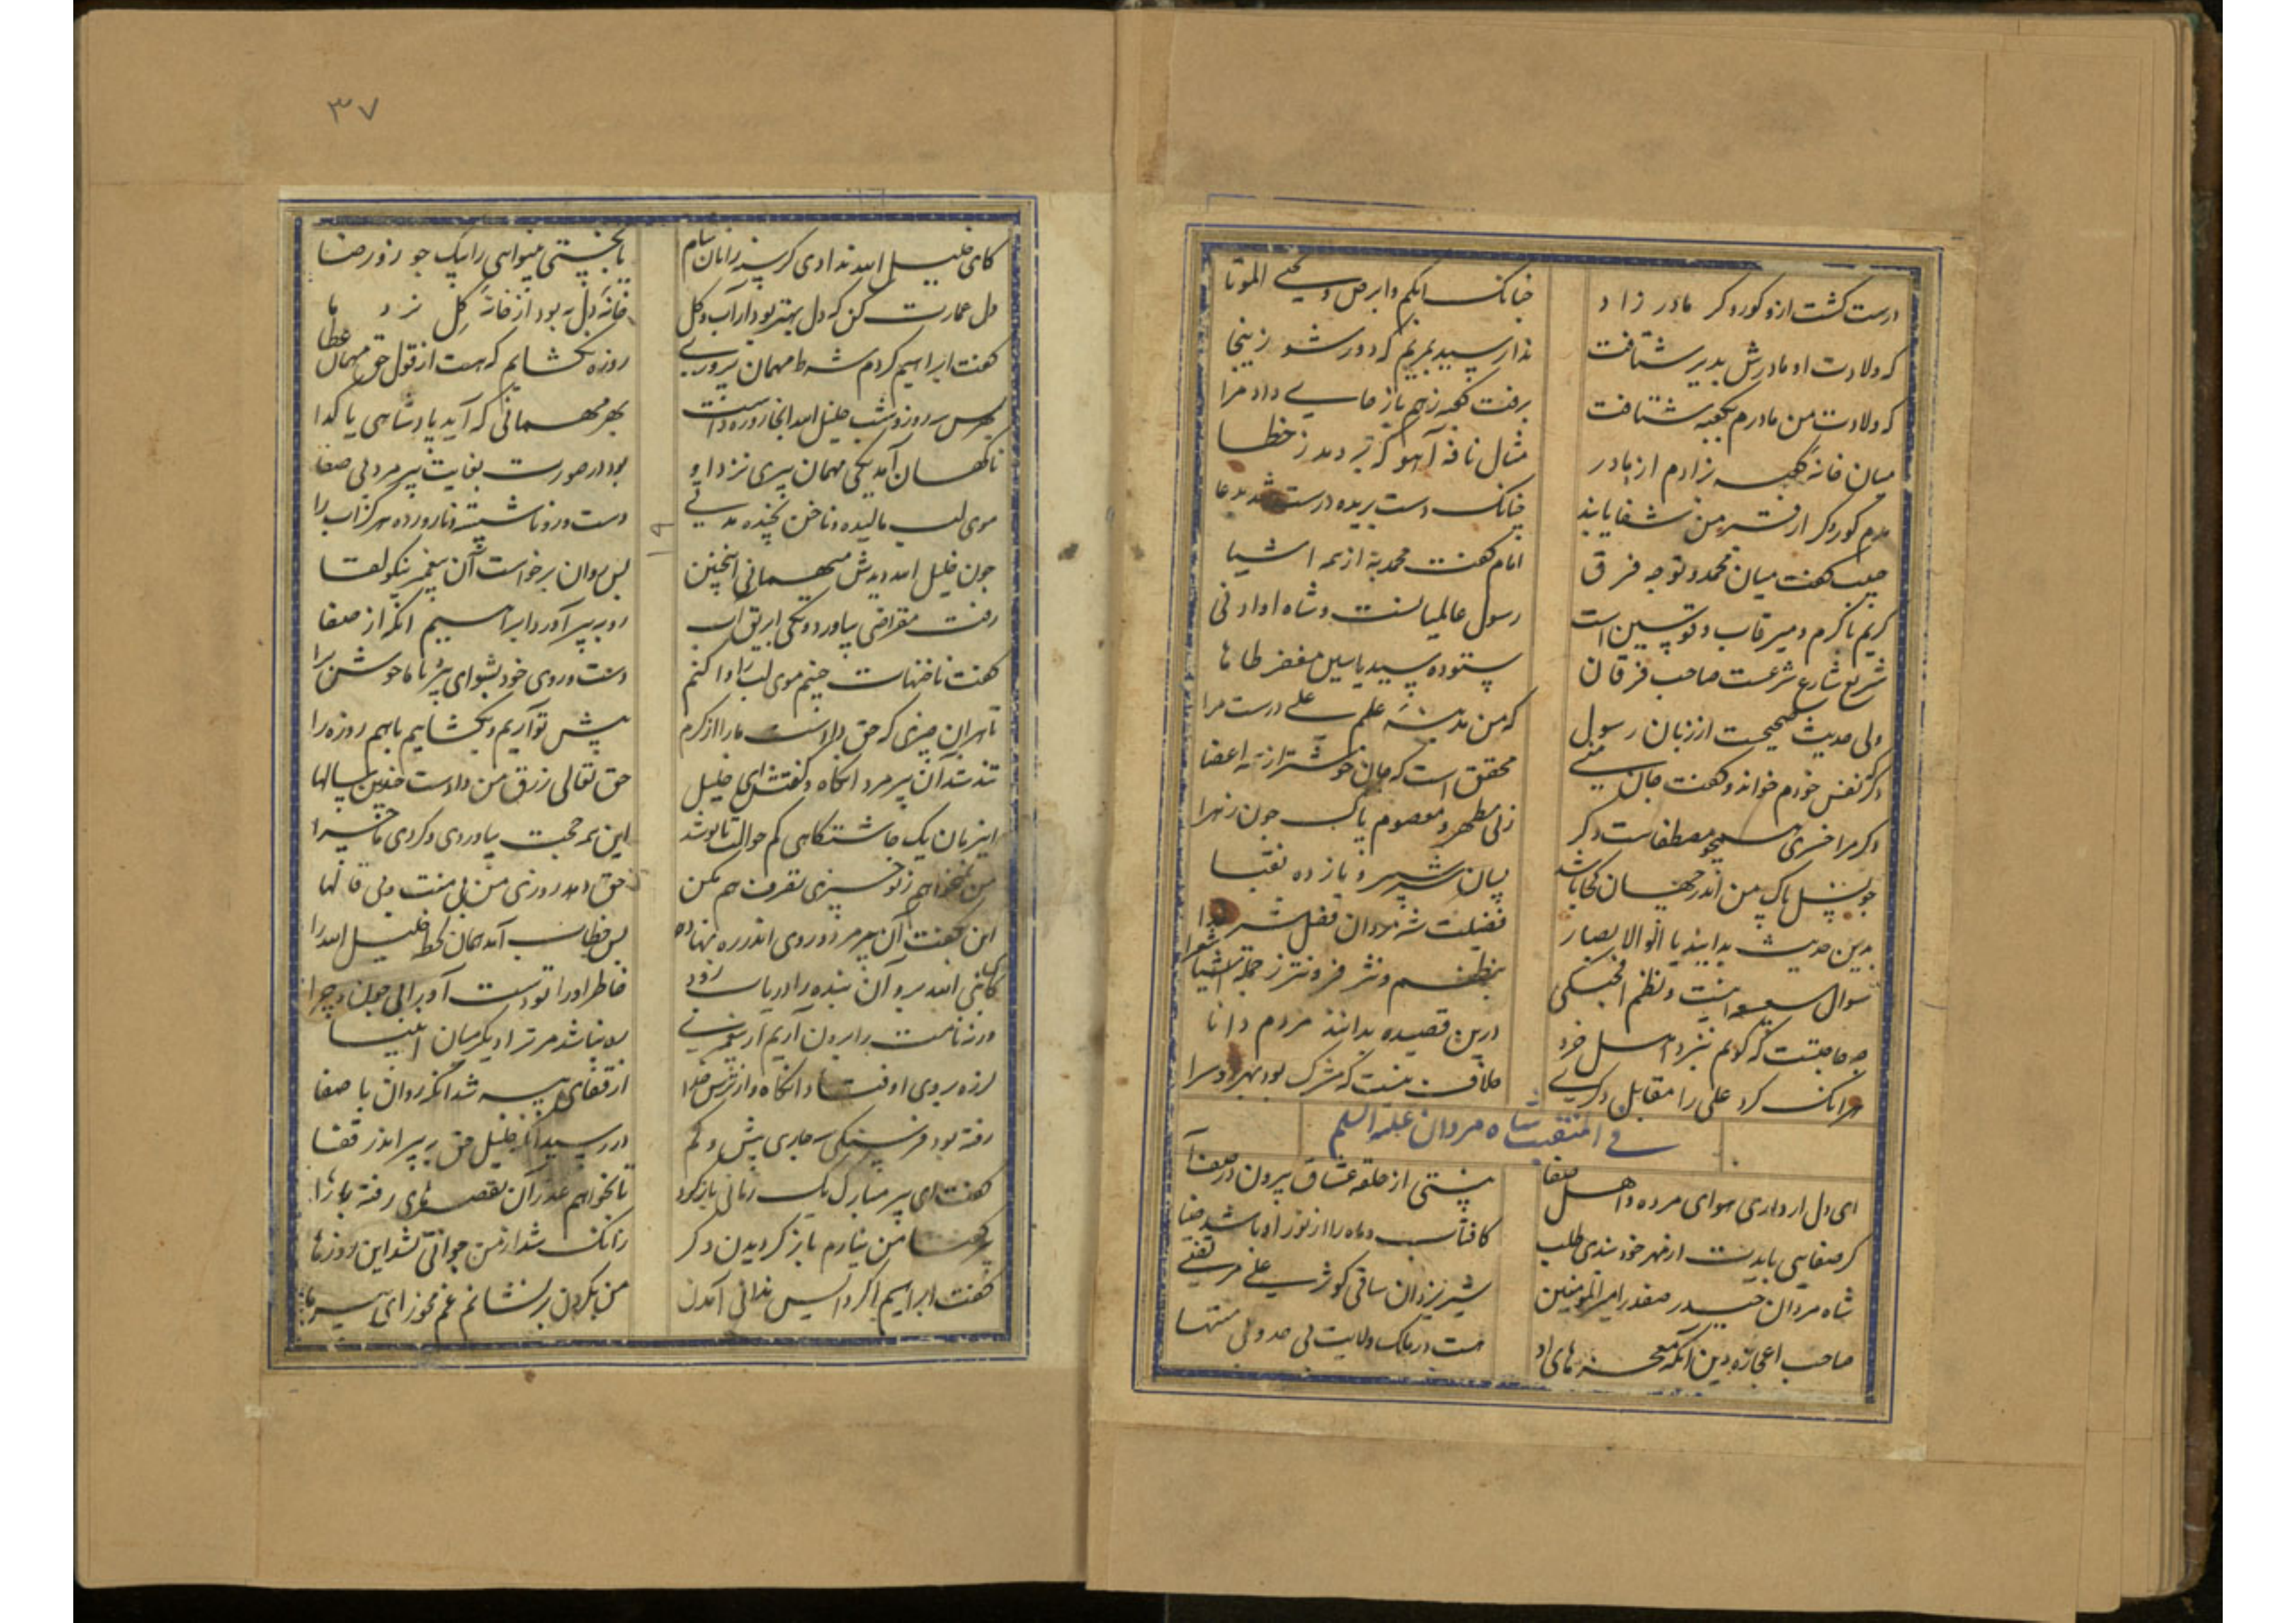 درست گشت ازو کور و کر مادر زاد
چنانک ابکم و ابرص و یحیی الموتا
که ولادت او مادرش بدیر شتافت
ندا رسید بمریم که دور شو زینجا
که ولادت من مادرم بکعبه شتافت
برفت کعبه زهم باز جای داد مرا
میان خانه کعبه بزادم از مادر
مثال نافه آهو که بر دمد ز خطا
کور و کر از من شفا یابند
چنانک دست بریده درست شد بدعا
گفت میان محمد و تو چه فرق
امام گفت محمد به از همه اشیا
کریم با کرم و میر قاب و قوسین است
رسول عالمیانست و شاه او ادنی
شریع شارع شرعست صاحب فرقان
ستوده سید یاسین مفخر طاها
ولی حدیث صحیحست از زبان رسول
که من مدینه علم علی درست مرا
دگر نفس خودم خواند و گفت جان منی
محقق است که جان خوشتر از همه اعضا
دگر مرا خسری مصطفاست دگر
زنی مطهر و معصوم پاک چون زهرا
چو نسل پاک من اندر جهان کجا باشد
بسان شبر و شبیر و یازده نقبا
بدین حدیث بدانید یا اولو الابصار
فضیلت شه مردان فضل شیر خدا
سوال و نظم
بنظم و نثر فزونتر ز جمله شعرا
چه حاجتست که گویم بنزد اهل خرد
درین قصیده بدانند مردم دانا
هرانک کرد علی را مقابل دگری
خلاف نیست که مشرک بود بهر دو سرا
فی المنقبت شاه مردان علیه السلم
ای دل ار داری هوای مرده اهل صفا
نیستی از حلقه عشاق بیرون در صفا
گر صفایی بایدت از مهر خورشیدی طلب
کافتاب و ماه را از نور او باشد ضیا
شاه مردان حیدر صفدر امیرالمؤمنین
شیر یزدان ساقی کوثر علی مرتضی
صاحب اعجاز و دین آنکه معجزهای او
هست در ملک ولایت بی حد و بی منتها
۳۷
کای خلیل الله ندادی گرسنه را نان شام
یا بجستی بینوایی را بیک جو زو رضا
دل عمارت کن که دل بهتر بود از آب و گل
خانه دل به بود از خانه گل نزد ما
گفت ابراهیم کردم شرط مهمان پروری
روزه نگشایم که هست از قول حق مهمان عطا
پس سه روز و شب خلیل الله آنجا روزه داشت
بهر مهمانی که آید پادشاهی یا گدا
ناگهان آمد یکی مهمان پیری نزد او
بود در صورت بغایت پیر مرد بی صفا
موی لب مالیده و ناخن نچیده مدتی
دست و رو ناشسته و نارورده هرگز آب را
چون خلیل الله دیدش میهمانی اینچنین
پس روان برخواست آن پیغمبر نیکو لقا
رفت مقراضی بیاورد و یکی ابریق آب
رو به پیر آورد ابراهیم انگه از صفا
گفت ناخنهات چینم موی لب را وا کنم
دست و روی خود بشو ای پیر
تا هران چیزی که حق دادست ما را از کرم
پیش تو آریم و بگشاییم با هم روزه را
تند شد آن پیر مرد انگاه و گفتش ای خلیل
حق تعالی رزق من دادست چندین سالها
این زمان یک چاشتگاهی کم حوالت با تو شد
این همه حجت بیاوردی و کردی ماجرا
من نخواهم ز تو چیزی تصرف هم مکن
حق دهد روزی من بی منت و بی قالها
این بگفت آن پیر مرد و روی اندر ره نهاد
پس خطاب آمد همان لحظه خلیل الله را
کای نبی الله برو آن بنده را دریاب زود
خاطر او را بدست آور بی چون و چرا
ورنه نامت را برون آریم از پیغمبری
ره نباشد مر ترا دیگر میان انبیا
لرزه بر وی اوفتاد انگاه و از ترس خدا
از قفای پیر شد انگه روان با صفا
رفته بود فرسنگی سه چاری بیش و کم
در رسید انگه خلیل حق به پیر اندر قفا
گفت ای پیر مبارک یک زمانی بازگرد
تا بخواهم عذر آن تقصیرهای رفته را
پیر گفتا من نیارم باز گردیدن دگر
زانک شد از من جوانی
گفت ابراهیم اگر واپس ندانی آمدن
من بگردن بر نشانم غم مخور ای پیر ما